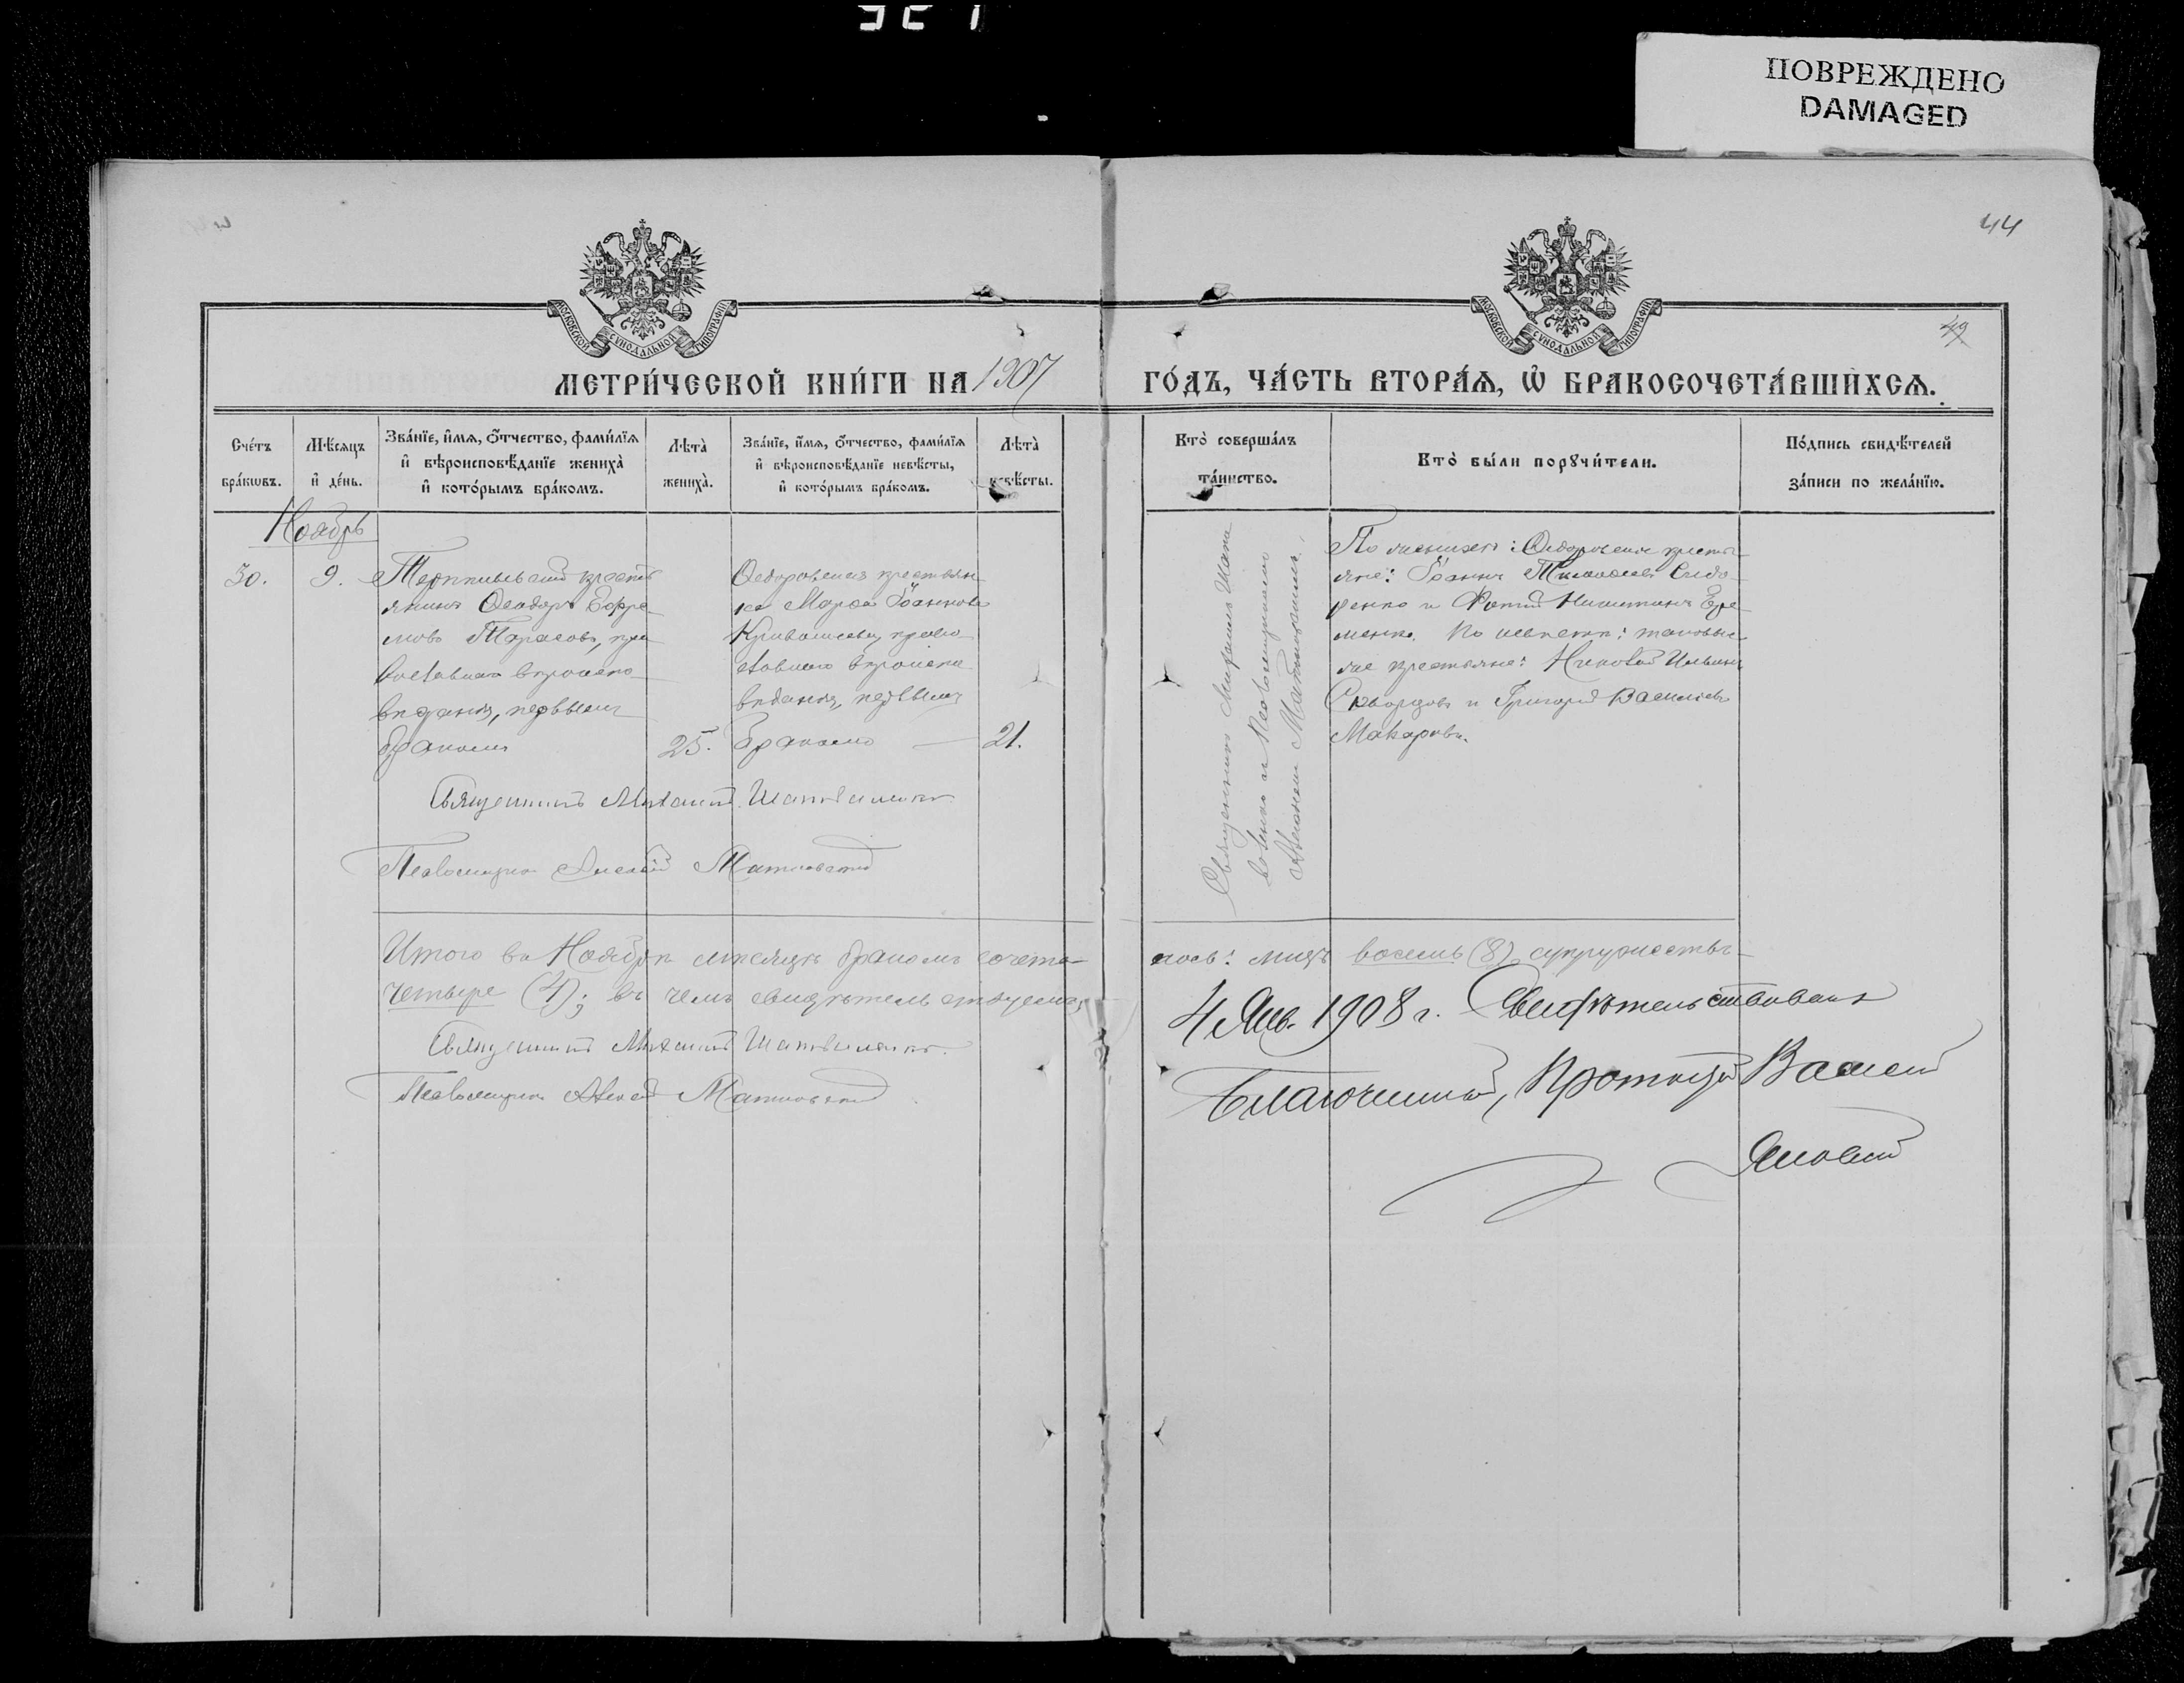 ПОВРЕЖДЕНО
DAMAGED
44
49
МОСКОВСКОЙ СѴНОДАЛЬНОЙ ТИПОГРАФІИ
МОСКОВСКОЙ СѴНОДАЛЬНОЙ ТИПОГРАФІИ
МЕТРИ́ЧЕСКОЙ КНИ́ГИ НА 1907
ГО́ДЪ, ЧА́СТЬ ВТОРА́Я, Ѡ БРАКОСОЧЕТА́ВШИХСЯ.
Сче́тъ
бра́кѡвъ.
Мѣ́сяцъ
и де́нь.
Зва́нїе, и́мя, о́тчество, фами́лїя
и вѣроисповѣ́данїе жениха̀
и кото́рымъ бра́комъ.
Лѣта̀
жениха̀.
Зва́нїе, и́мя, о́тчество, фами́лїя
и вѣроисповѣ́данїе невѣ́сты,
и кото́рымъ бра́комъ.
Лѣта̀
невѣ́сты.
Кто̀ соверша́лъ
та́инство.
Кто̀ бы́ли порꙋчи́тели.
По́дпись свидѣ́телей
за́писи по жела́нїю.
Ноябрь
30.
9.
крестъ
янинъ Ѳеодоръ Ефре
мовъ Тарасовъ, пра
вославнаго вѣроиспо
вѣданія, первымъ
бракомъ
25.
Ѳедоровская крестьян
ка Марѳа Іоаннова
право
славнаго вѣроиспо
вѣданія, первымъ
бракомъ —
21.
Священникъ Михаилъ Шапо
валенко съ Псаломщикомъ
Алексіемъ Матковскимъ.
По женихѣ: Ѳедоровскіе кресть
яне: Іоаннъ Сидо
ренко и Фотій Никитинъ Ере
менко. По невѣстѣ: таковые
же крестьяне: Николай Ильинъ
Скворцовъ и Григорій Васильевъ
Макаровъ.
Священникъ Михаилъ Шаповаленко
Псаломщикъ Алексій Матковскій
Итого въ Ноябрѣ мѣсяцѣ бракомъ сочета-
лось: лицъ восемь (8), супружествъ
четыре (4); въ чемъ свидѣтельствуемъ,
Священникъ Михаилъ Шаповаленко.
Псаломщикъ Алексій Матковскій
4 Янв. 1908 г. Свидѣтельствовалъ
Благочинный, Протоіерей Василій